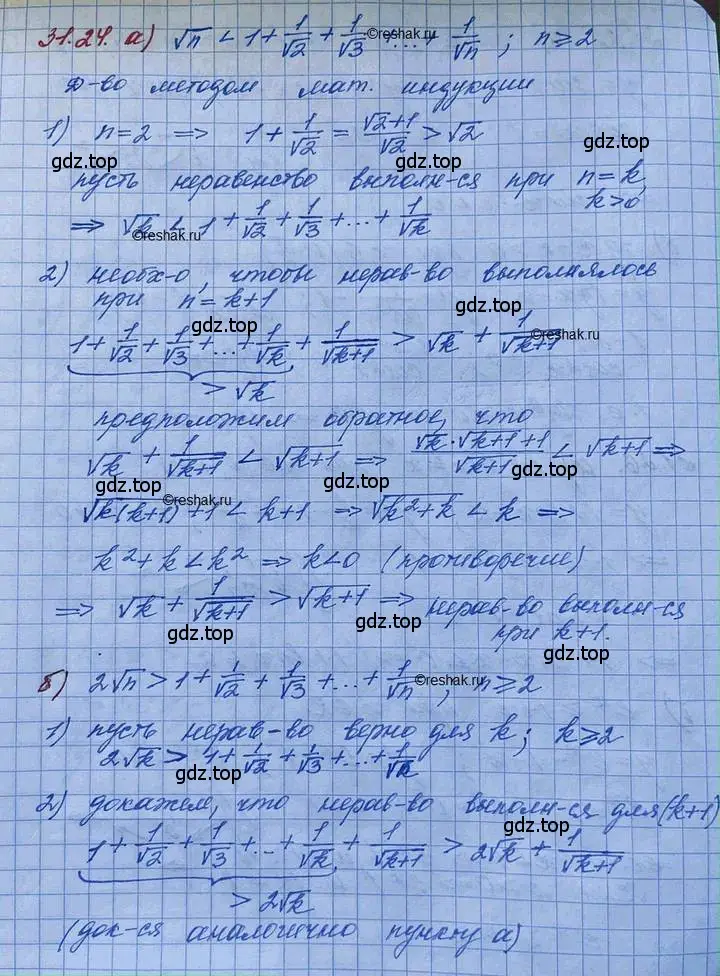 31.24. а) √n < 1 + 1/√2 + 1/√3 + ... + 1/√n ; n ≥ 2
©reshak.ru
Д-во методом мат. индукции
1) n = 2 ⇒ 1 + 1/√2 = (√2+1)/√2 > √2
gdz.top gdz.top
пусть неравенство выполн-ся при n = k,
k > 0
gdz.top
⇒ √k < 1 + 1/√2 + 1/√3 + ... + 1/√k
©reshak.ru
2) необх-о, чтобы нерав-во выполнялось
при n = k+1
gdz.top gdz.top
1 + 1/√2 + 1/√3 + ... + 1/√k + 1/√(k+1) > √k + 1/√(k+1)
©reshak.ru
> √k
предположим обратное, что
√k + 1/√(k+1) < √(k+1) ⇒ (√k · √(k+1) + 1)/√(k+1) < √(k+1) ⇒
gdz.top gdz.top
©reshak.ru
√(k(k+1)) + 1 < k+1 ⇒ √(k²+k) < k ⇒
k² + k < k² ⇒ k < 0 (противоречие)
⇒ √k + 1/√(k+1) > √(k+1) ⇒ нерав-во выполн-ся
при k+1.
gdz.top gdz.top
б) 2√n > 1 + 1/√2 + 1/√3 + ... + 1/√n ; n ≥ 2
©reshak.ru
1) пусть нерав-во верно для k; k ≥ 2
2√k > 1 + 1/√2 + 1/√3 + ... + 1/√k
gdz.top gdz.top
2) докажем, что нерав-во выполн-ся для (k+1)
gdz.top
1 + 1/√2 + 1/√3 + ... + 1/√k + 1/√(k+1) > 2√k + 1/√(k+1)
> 2√k
(док-ся аналогично пункту а)
gdz.top gdz.top